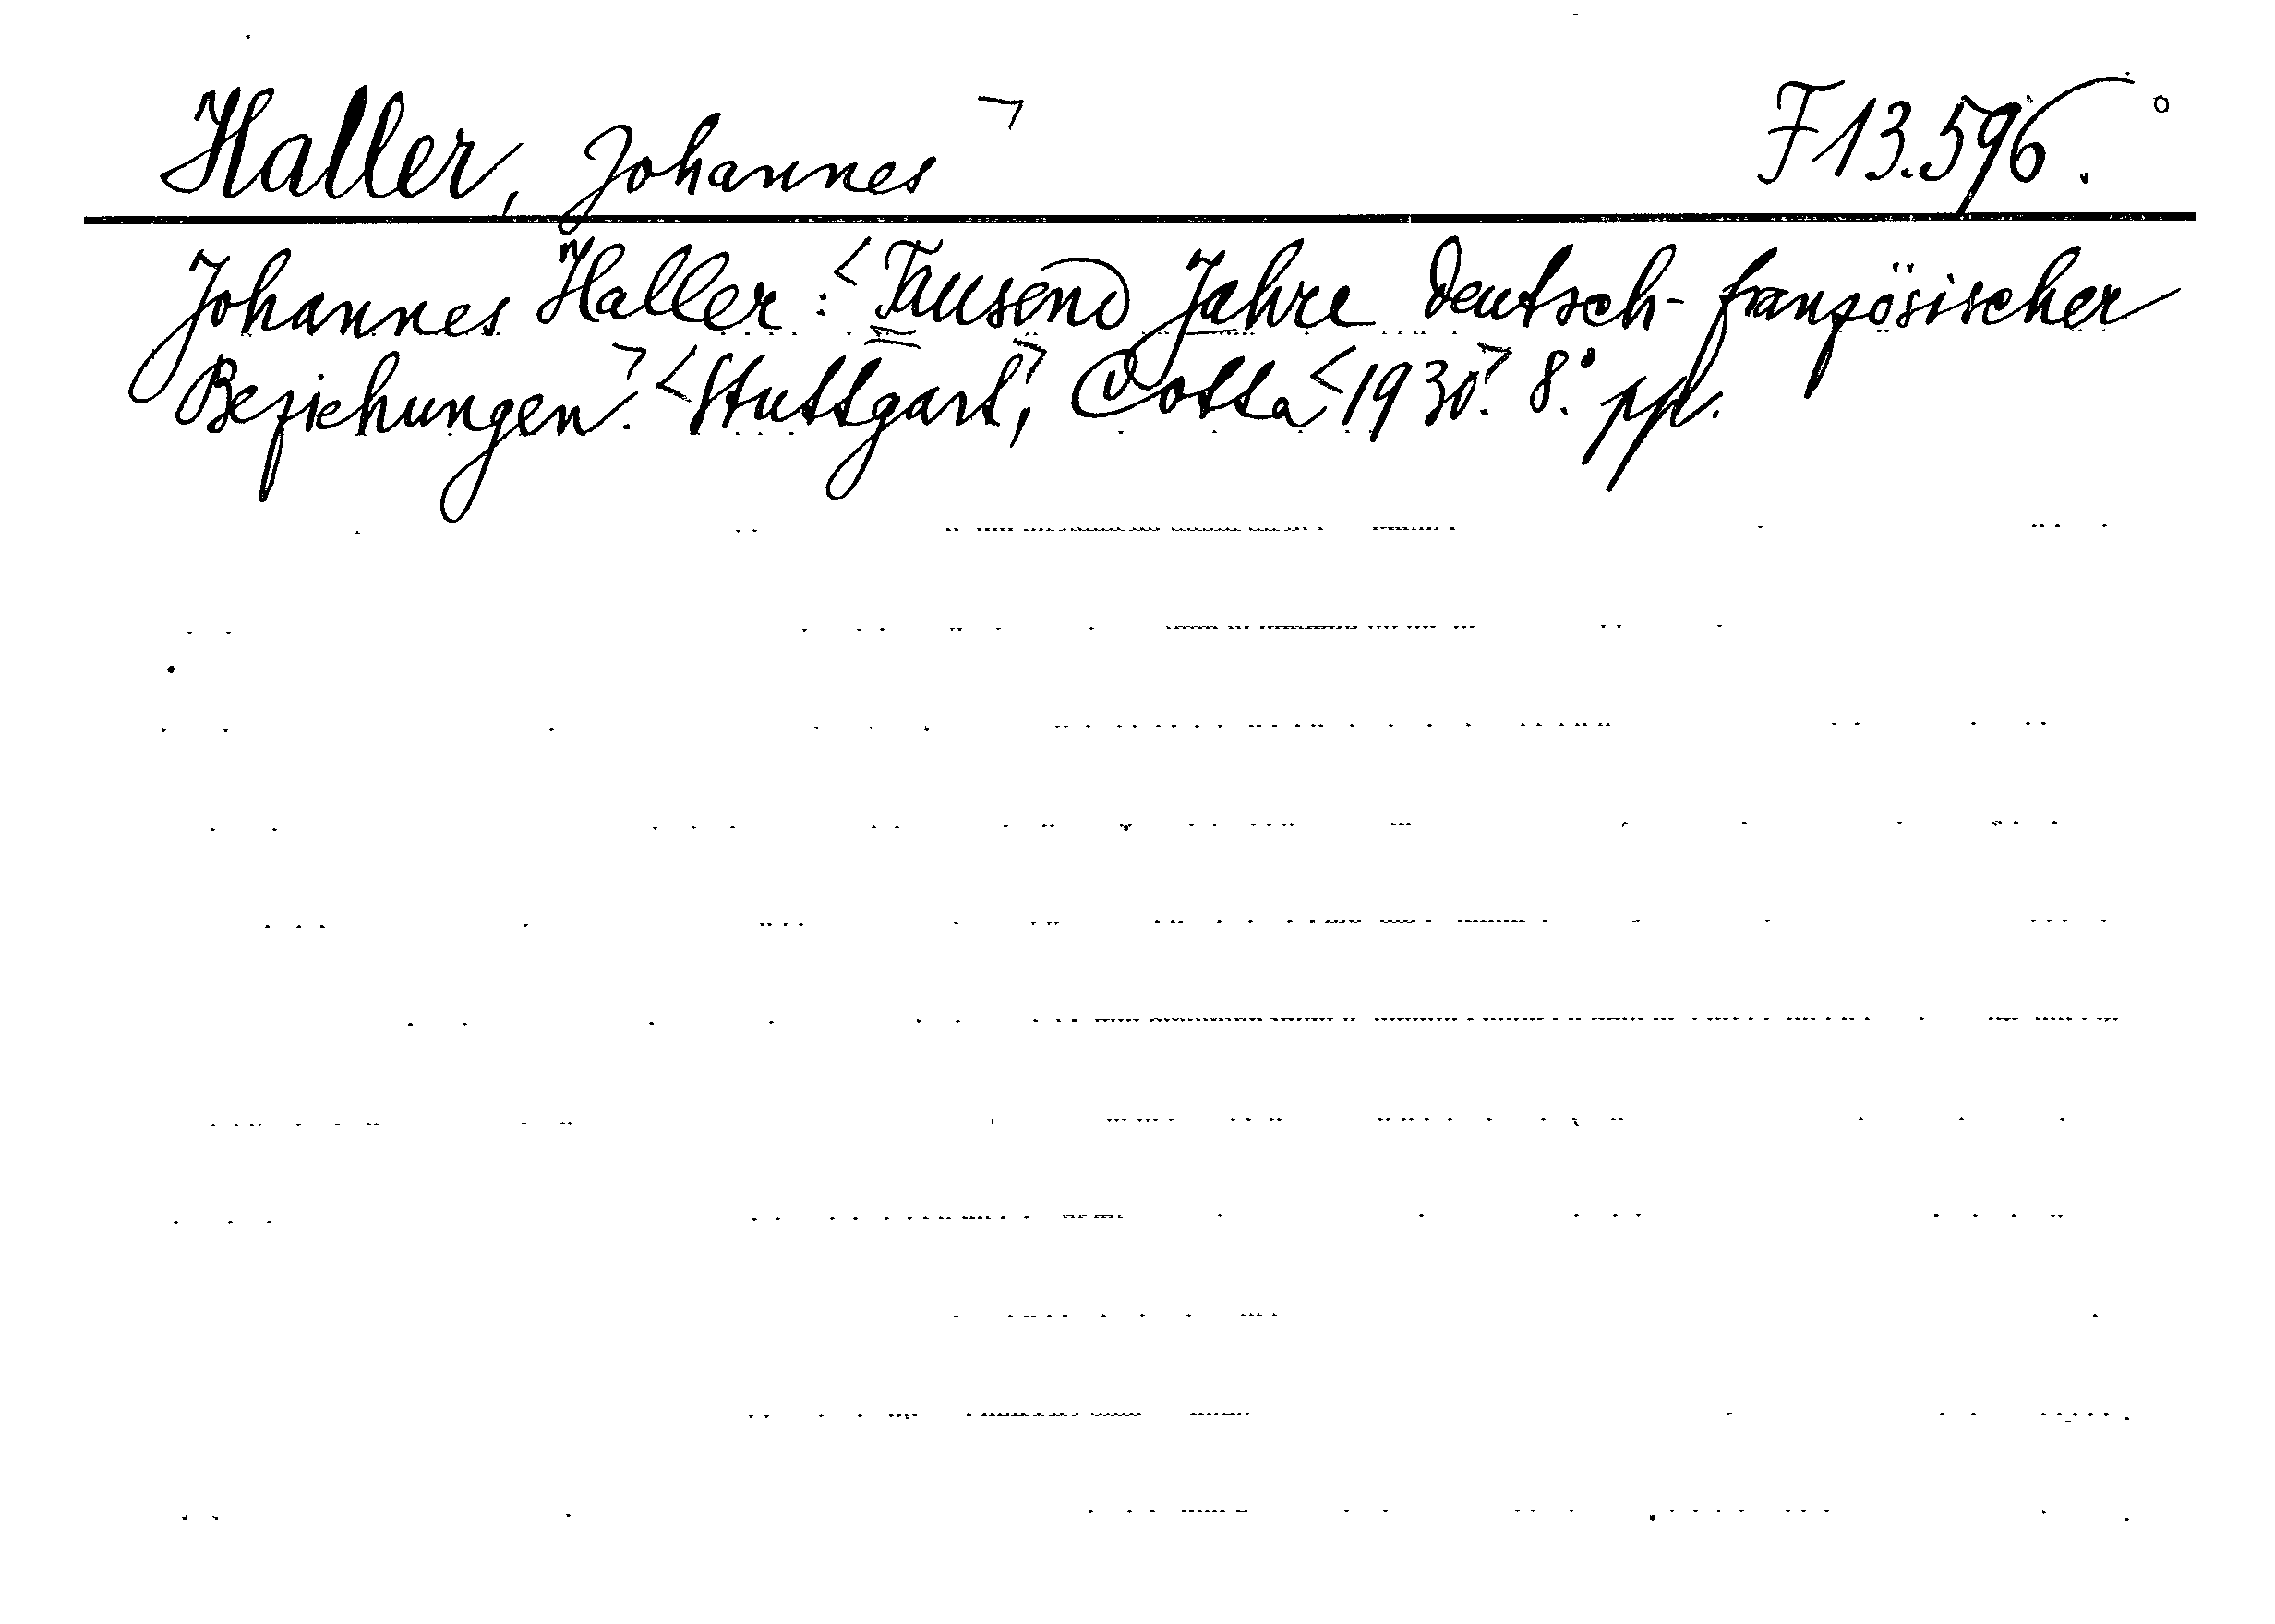 Haller, Johannes ⌝ F 13.596.°
Johannes Haller: <Tausend Jahre deutsch-französischer
Beziehungen⌝. <Stuttgart⌝, Cotta <1930⌝. 8°. ppl.